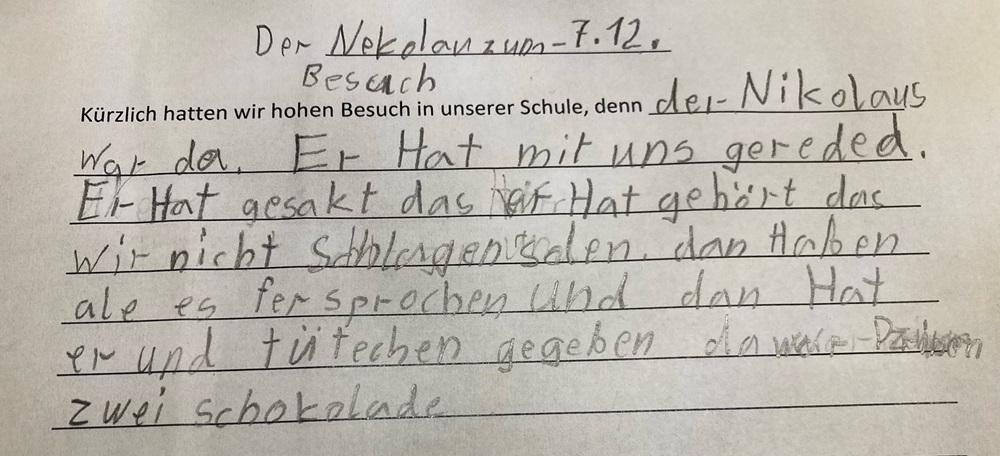 Der Nekolau zum - 7.12.
Besuch
Kürzlich hatten wir hohen Besuch in unserer Schule, denn der Nikolaus
war da. Er Hat mit uns gereded.
Er Hat gesakt das er Hat gehört das
wir nicht Schlagen solen. dan Haben
ale es fersprochen und dan Hat
er und tütechen gegeben da war
zwei schokolade